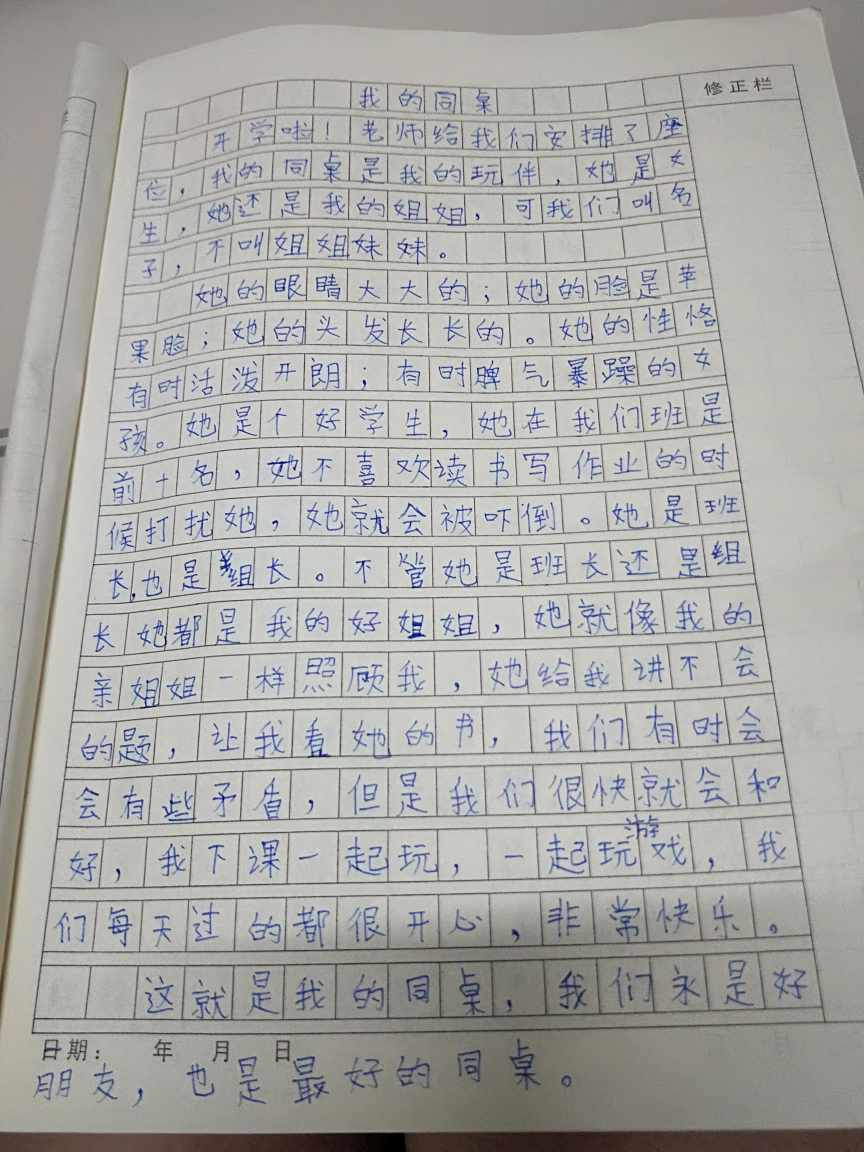 修正栏
我的同桌
开学啦！老师给我们安排了座
位，我的同桌是我的玩伴，她是女
生，她还是我的姐姐，可我们叫名
子，不叫姐姐妹妹。
她的眼睛大大的；她的脸是苹
果脸；她的头发长长的。她的性格
有时活泼开朗；有时脾气暴躁的女
孩。她是个好学生，她在我们班是
前十名，她不喜欢读书写作业的时
候打扰她，她就会被吓倒。她是班
长，也是组长。不管她是班长还是组
长她都是我的好姐姐，她就像我的
亲姐姐一样照顾我，她给我讲不会
的题，让我看她的书，我们有时会
会有些矛盾，但是我们很快就会和
好，我下课一起玩，一起玩游戏，我
们每天过的都很开心，非常快乐。
这就是我的同桌，我们永是好
日期： 年 月 日
朋友，也是最好的同桌。